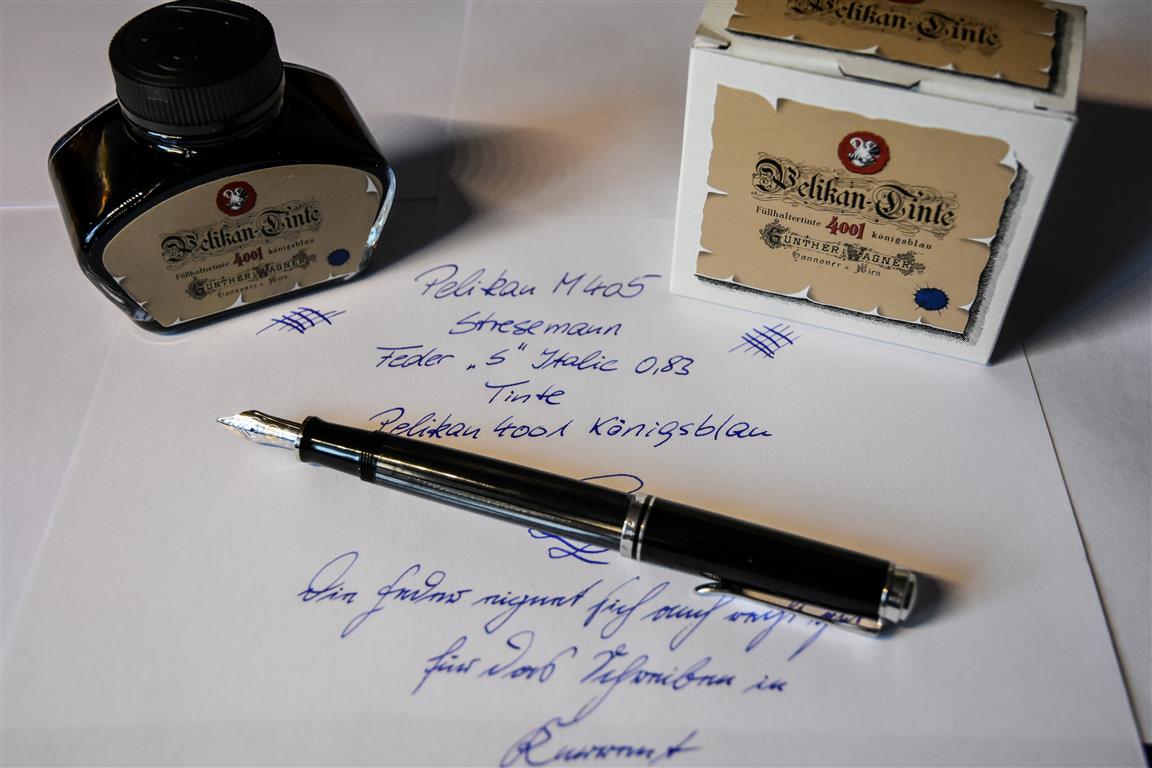 Pelikan-Tinte
Pelikan-Tinte
Füllhaltertinte 4001 königsblau
GÜNTHER WAGNER
Hannover u. Wien
Pelikan-Tinte
Füllhaltertinte 4001 königsblau
GÜNTHER WAGNER
Hannover u. Wien
Pelikan M405
Stresemann
Feder „S“ Italic 0,83
Tinte
Pelikan 4001 Königsblau
Die Feder eignet sich auch
für das Schreiben in
Kurrent